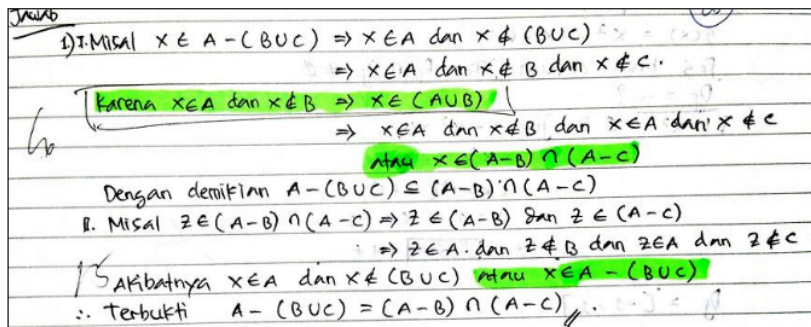 Jawab
1) I. Misal x ∈ A - (B∪C) ⇒ x ∈ A dan x ∉ (B∪C)
⇒ x ∈ A dan x ∉ B dan x ∉ C.
Karena x∈A dan x∉B ⇒ x ∈ (A∪B)
⇒ x∈A dan x∉B dan x∈A dan x ∉ C
atau x ∈ (A-B) ∩ (A-C)
Dengan demikian A - (B∪C) ⊆ (A-B) ∩ (A-C)
II. Misal z∈(A-B) ∩ (A-C) ⇒ z ∈ (A-B) dan z ∈ (A-C)
⇒ z∈A. dan z∉B dan z∈A dan z∉C
15 Akibatnya x∈A dan x∉(B∪C) atau x∈A - (B∪C)
∴ Terbukti A - (B∪C) = (A-B) ∩ (A-C) //.